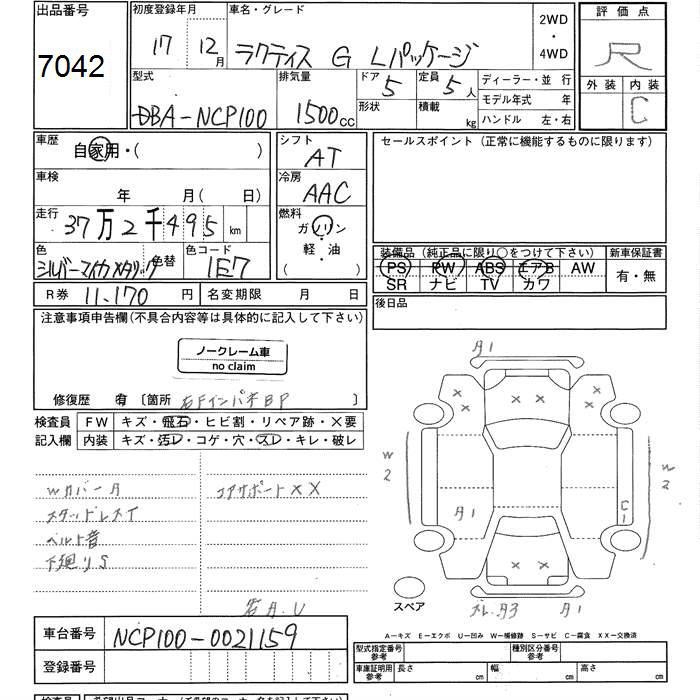 出品番号
7042
初度登録年月
17 12月
車名・グレード
ラクティス G Lパッケージ
2WD
・
4WD
評価点
R
外装 内装
C
型式
DBA-NCP100
排気量
1500cc
ドア 5
形状
定員 5人
積載 kg
ディーラー・並行
モデル年式 年
ハンドル 左・右
車歴
自家用・( )
シフト
AT
セールスポイント (正常に機能するものに限ります)
車検
年 月(日)
冷房
AAC
走行
37万2千495km
燃料
ガソリン
・
軽・油
( )
色
シルバーマイカメタリック
色替
色コード
1E7
装備品 (純正品に限り○をつけて下さい)
PS PW ABS エアB AW
SR ナビ TV カワ
新車保証書
有・無
R券 11,170円
名変期限 月 日
後日品
注意事項申告欄(不具合内容等は具体的に記入して下さい)
ノークレーム車
no claim
修復歴 有 [箇所 右Fインパネ BP ]
検査員
記入欄
FW キズ・飛石・ヒビ割・リペア跡・×要
内装 キズ・汚レ・コゲ・穴・スレ・キレ・破レ
Wカバー A
スタッドレスT
ベルト音
下廻りS
コアサポートXX
A1
W2
A1
C1
W2
スペア
A3
A1
A-キズ E-エクボ U-凹み W-補修跡 S-サビ C-腐食 XX-交換済
車台番号 NCP100-0021159
登録番号
型式指定番号
参考
種別区分番号
参考
車庫証明用
参考
長さ cm 幅 cm 高さ cm